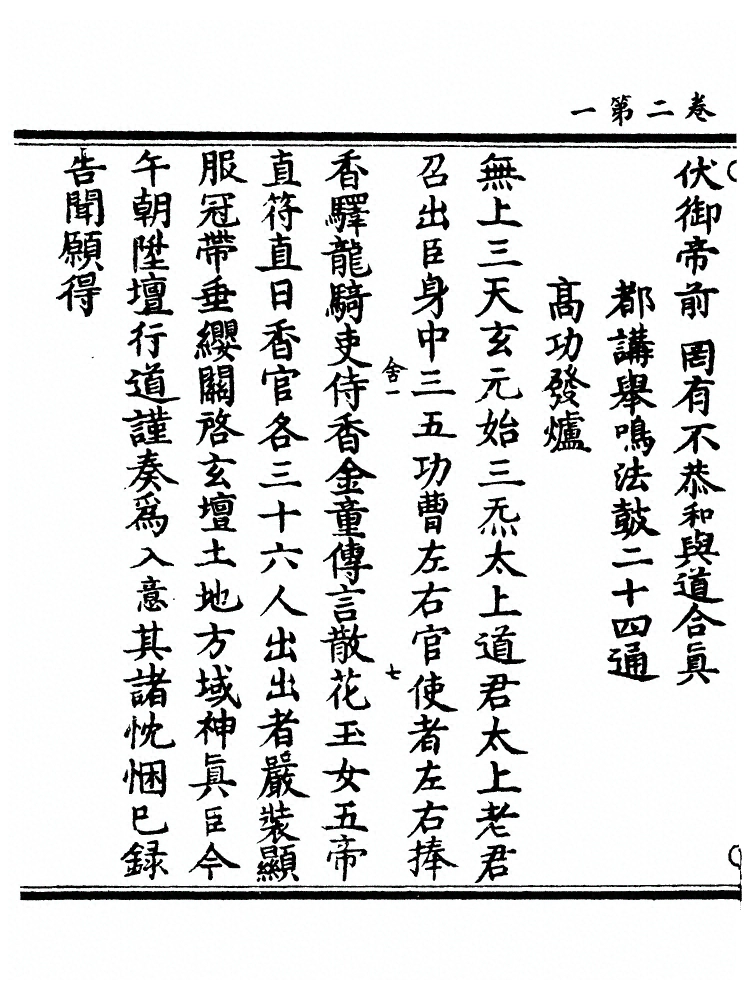 卷二第一
伏御帝前罔有不恭和與道合眞
都講舉鳴法鼓二十四通
髙功發爐
無上三天玄元始三炁太上道君太上老君
召出臣身中三五功曹左右官使者左右捧
舍一
七
香驛龍騎吏侍香金童傳言散花玉女五帝
直符直日香官各三十六人出出者嚴裝顯
服冠帶垂纓關啓玄壇土地方域神眞臣今
午朝陞壇行道謹奏爲入意其諸忱悃已録
告聞願得